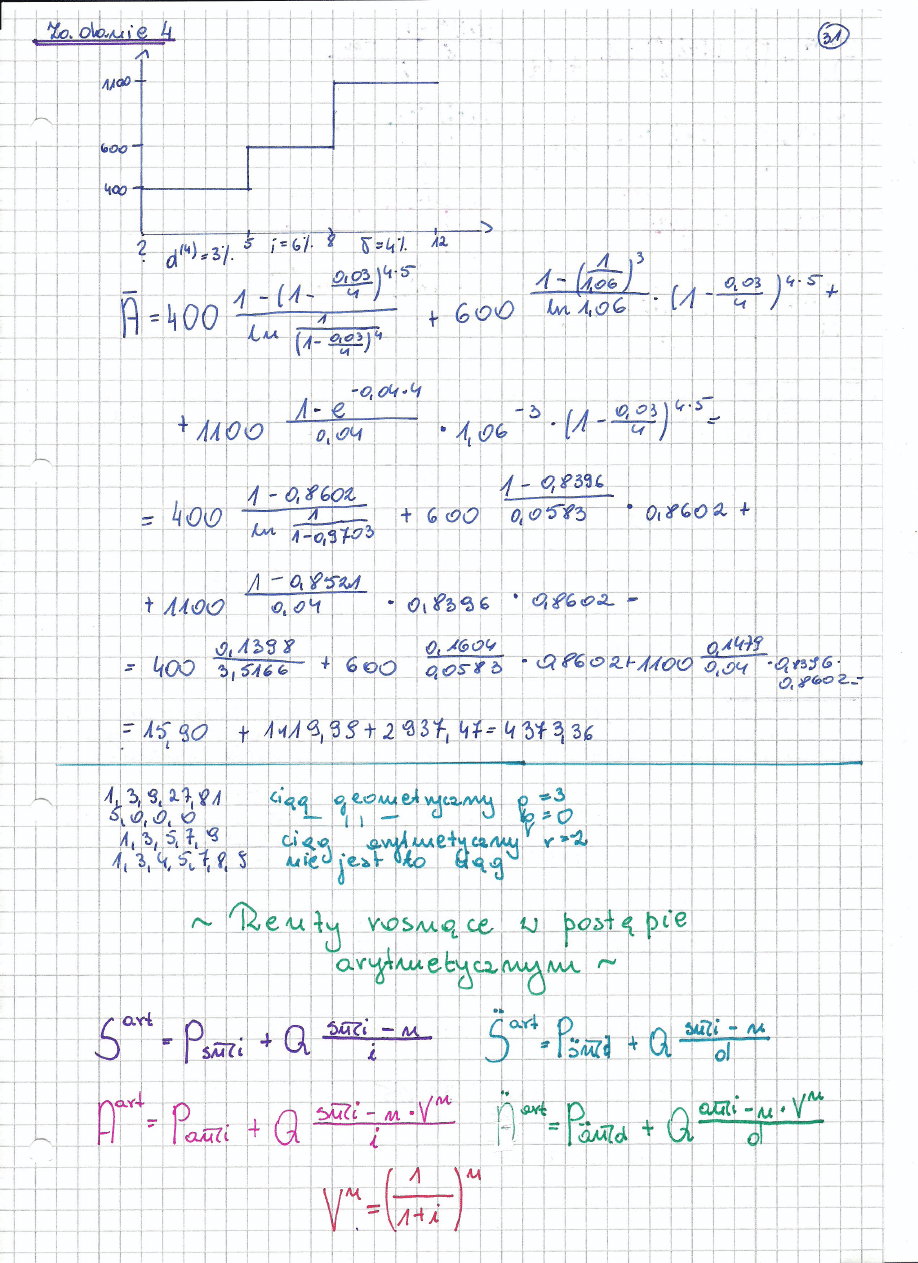 Zadanie 4
31
1100
600
400
? d^(4)=3% 5 i=6% 8 δ=4% 12
Ā = 400 \frac{1-(1-\frac{0,03}{4})^{4·5}}{ln \frac{1}{(1-\frac{0,03}{4})^4}} + 600 \frac{1-(\frac{1}{1,06})^3}{ln 1,06} · (1-\frac{0,03}{4})^{4·5} +
+ 1100 \frac{1-e^{-0,04·4}}{0,04} · 1,06^{-3} · (1-\frac{0,03}{4})^{4·5} =
= 400 \frac{1-0,8602}{ln \frac{1}{1-0,9703}} + 600 \frac{1-0,8396}{0,0583} · 0,8602 +
+ 1100 \frac{1-0,8521}{0,04} · 0,8396 · 0,8602 =
= 400 \frac{0,1398}{3,5166} + 600 \frac{0,1604}{0,0583} · 0,8602 + 1100 \frac{0,1479}{0,04} · 0,8396 · 0,8602 =
= 15,90 + 1419,99 + 2937,47 = 4373,36
1, 3, 9, 27, 81 ciąg geometryczny q = 3
5, 0, 0, 0 — 11 — q = 0
1, 3, 5, 7, 9 ciąg arytmetyczny r = 2
1, 3, 4, 5, 7, 8, 9 nie jest to ciąg
~ Renty rosnące w postępie
arytmetycznym ~
S^{art} = P s_{n̅|i} + Q \frac{s_{n̅|i} - n}{i} S̈^{art} = P s̈_{n̅|d} + Q \frac{s_{n̅|i} - n}{d}
A^{art} = P a_{n̅|i} + Q \frac{s_{n̅|i} - n · V^n}{i} Ä^{art} = P ä_{n̅|d} + Q \frac{a_{n̅|i} - n · V^n}{d}
V^n = (\frac{1}{1+i})^n